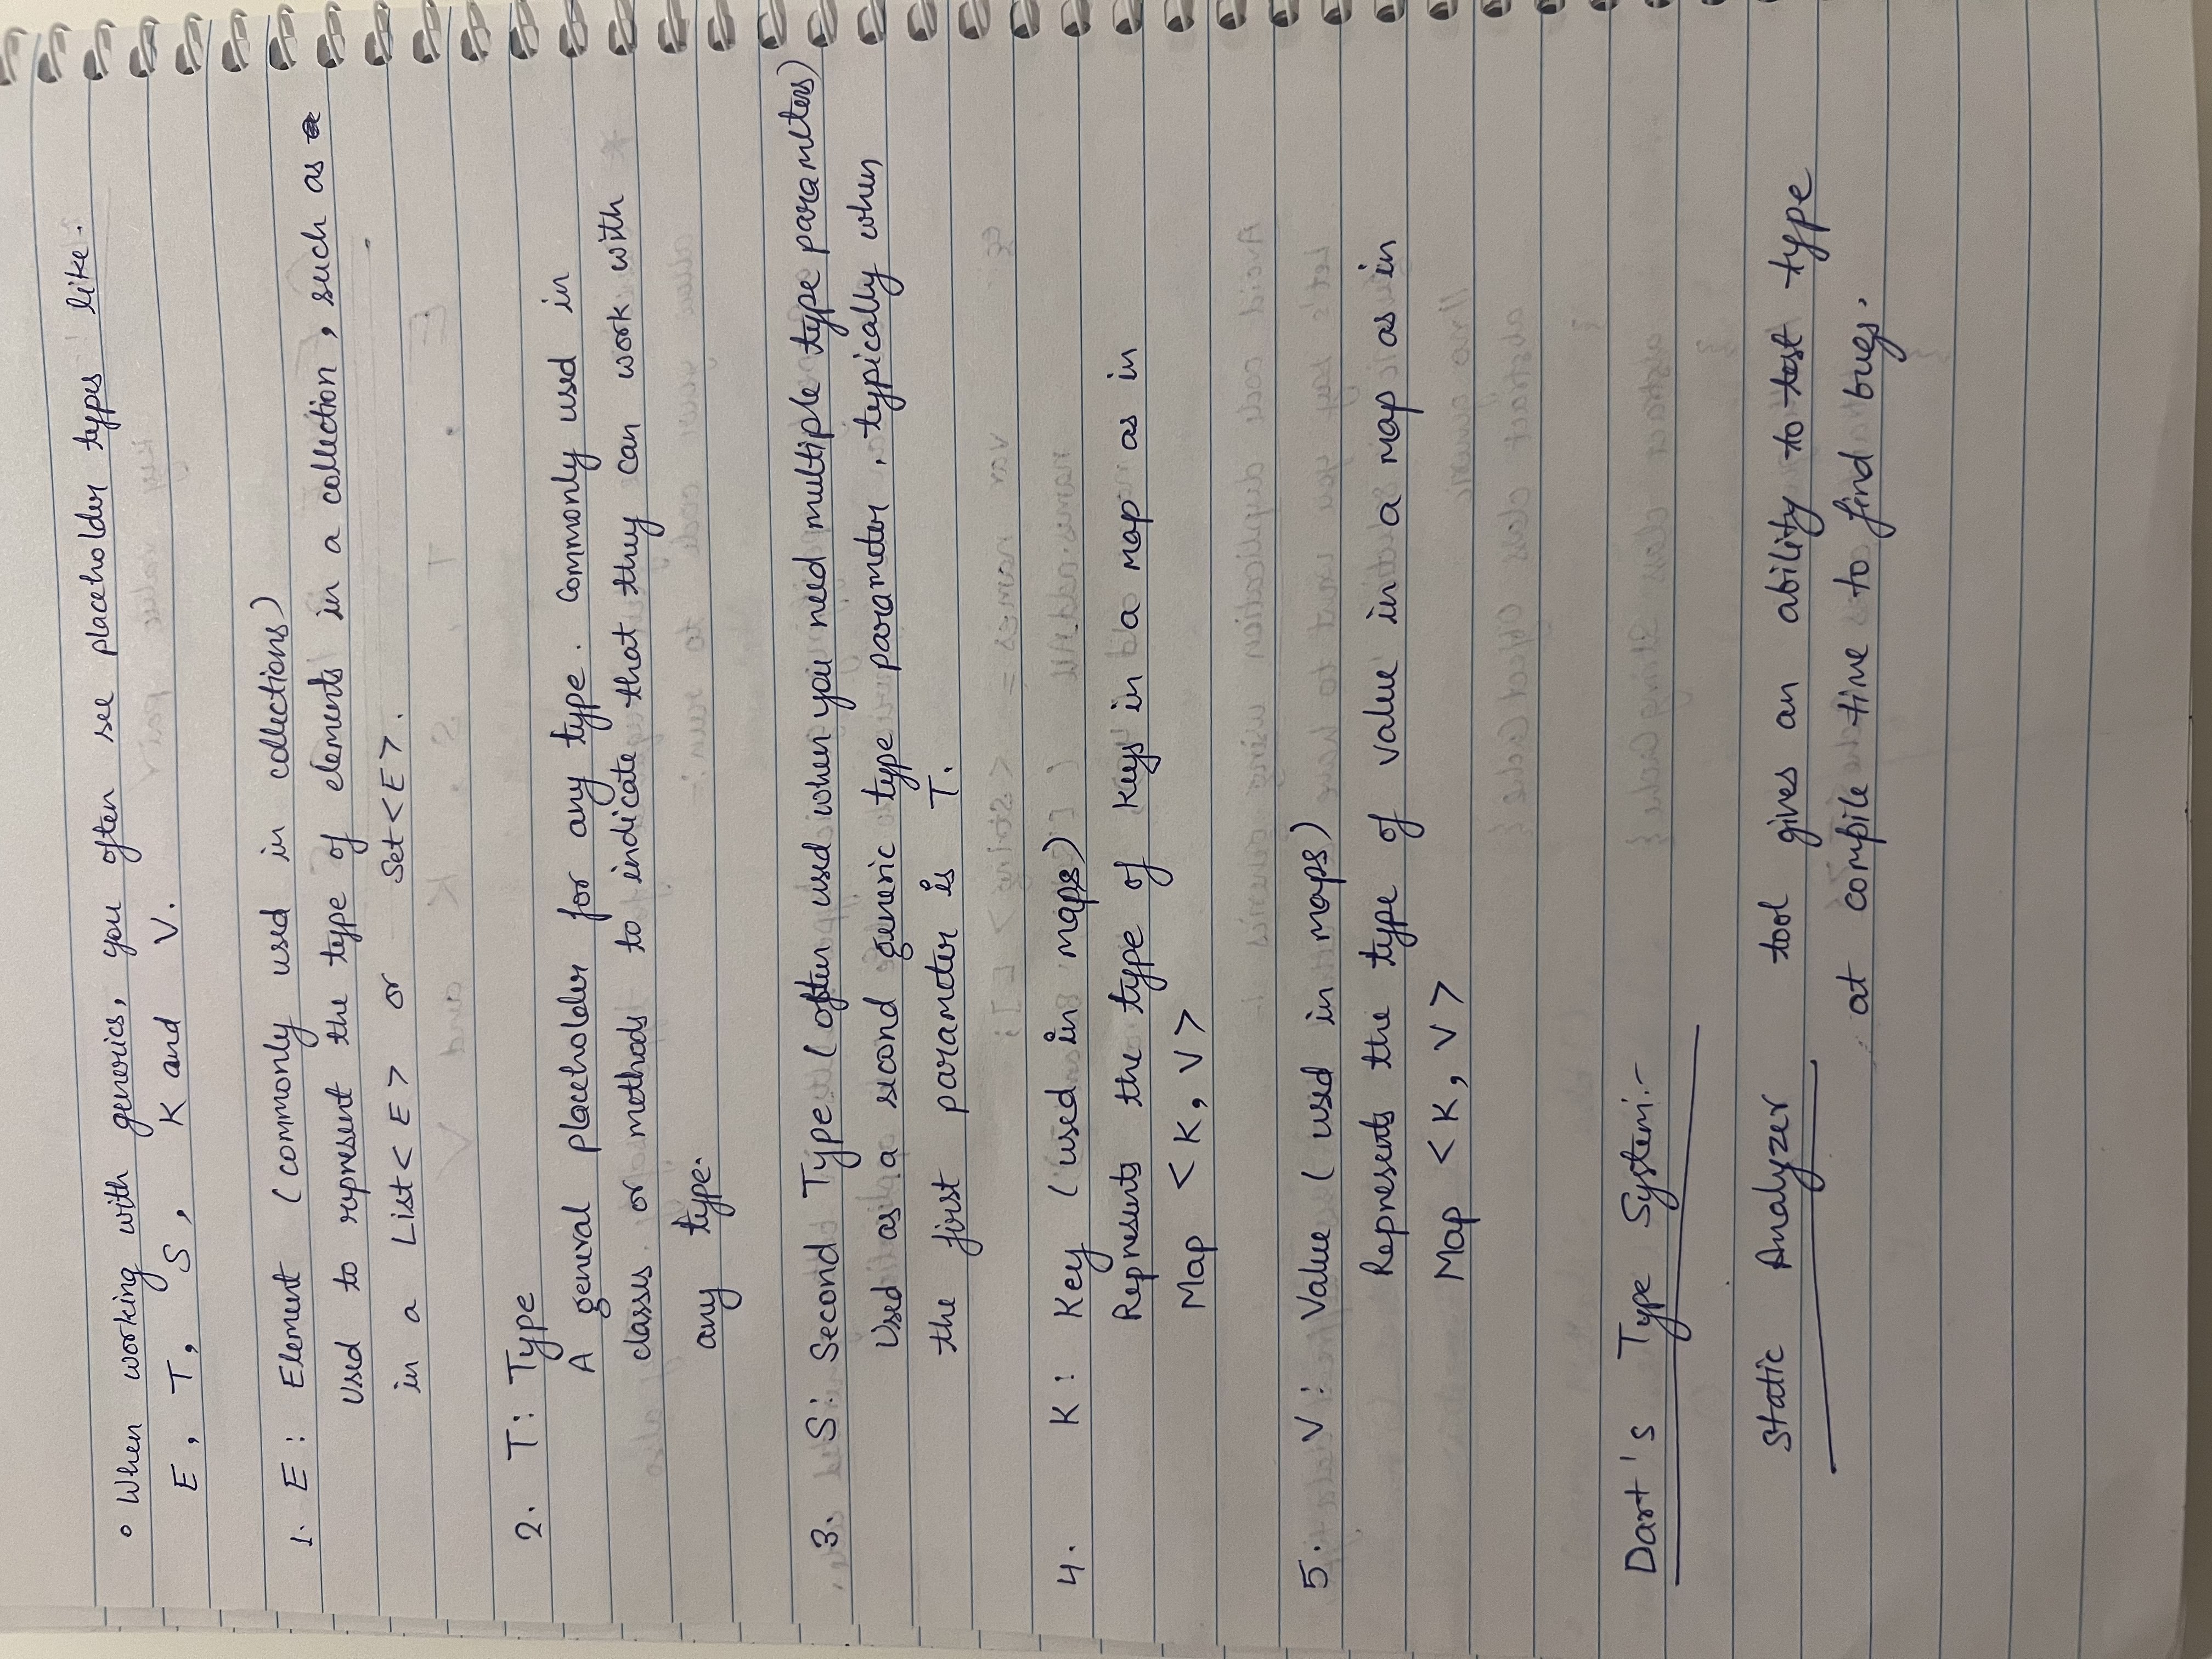 ◦ When working with generics, you often see placeholder types like.
E, T, S, K and V.
1. E: Element (commonly used in collections)
Used to represent the type of elements in a collection, such as
in a List<E> or Set<E>.
2. T: Type
A general placeholder for any type. Commonly used in
classes or methods to indicate that they can work with
any type.
3. S: Second Type (often used when you need multiple type parameters)
Used as a second generic type parameter, typically when
the first parameter is T.
4. K: Key (used in maps)
Represents the type of keys in a map as in
Map <K, V>
5. V: Value (used in maps)
Represents the type of value in a map as in
Map <K, V>
Dart's Type System:-
Static Analyzer tool gives an ability to test type
at compile time to find bugs.